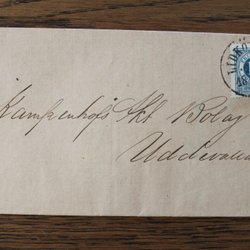 LIDKÖ
Kampenhofs Akt Bolag
Uddevalla